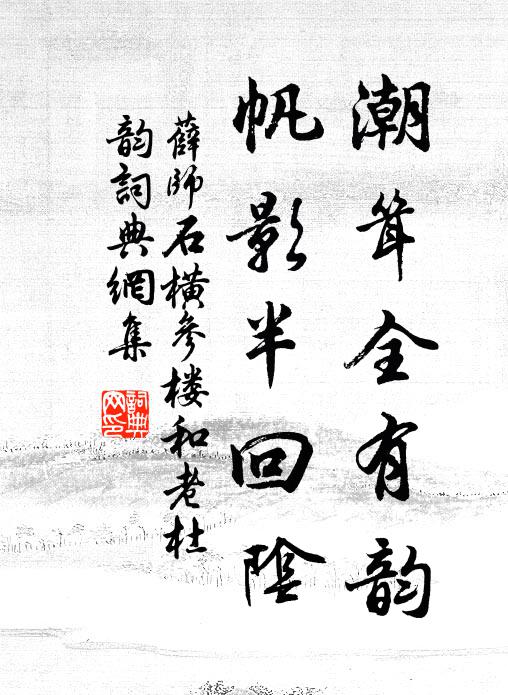 潮聳全有韵
帆影半回陰
薛師石橫參楼和老杜
韵詞典網集
詞典網印